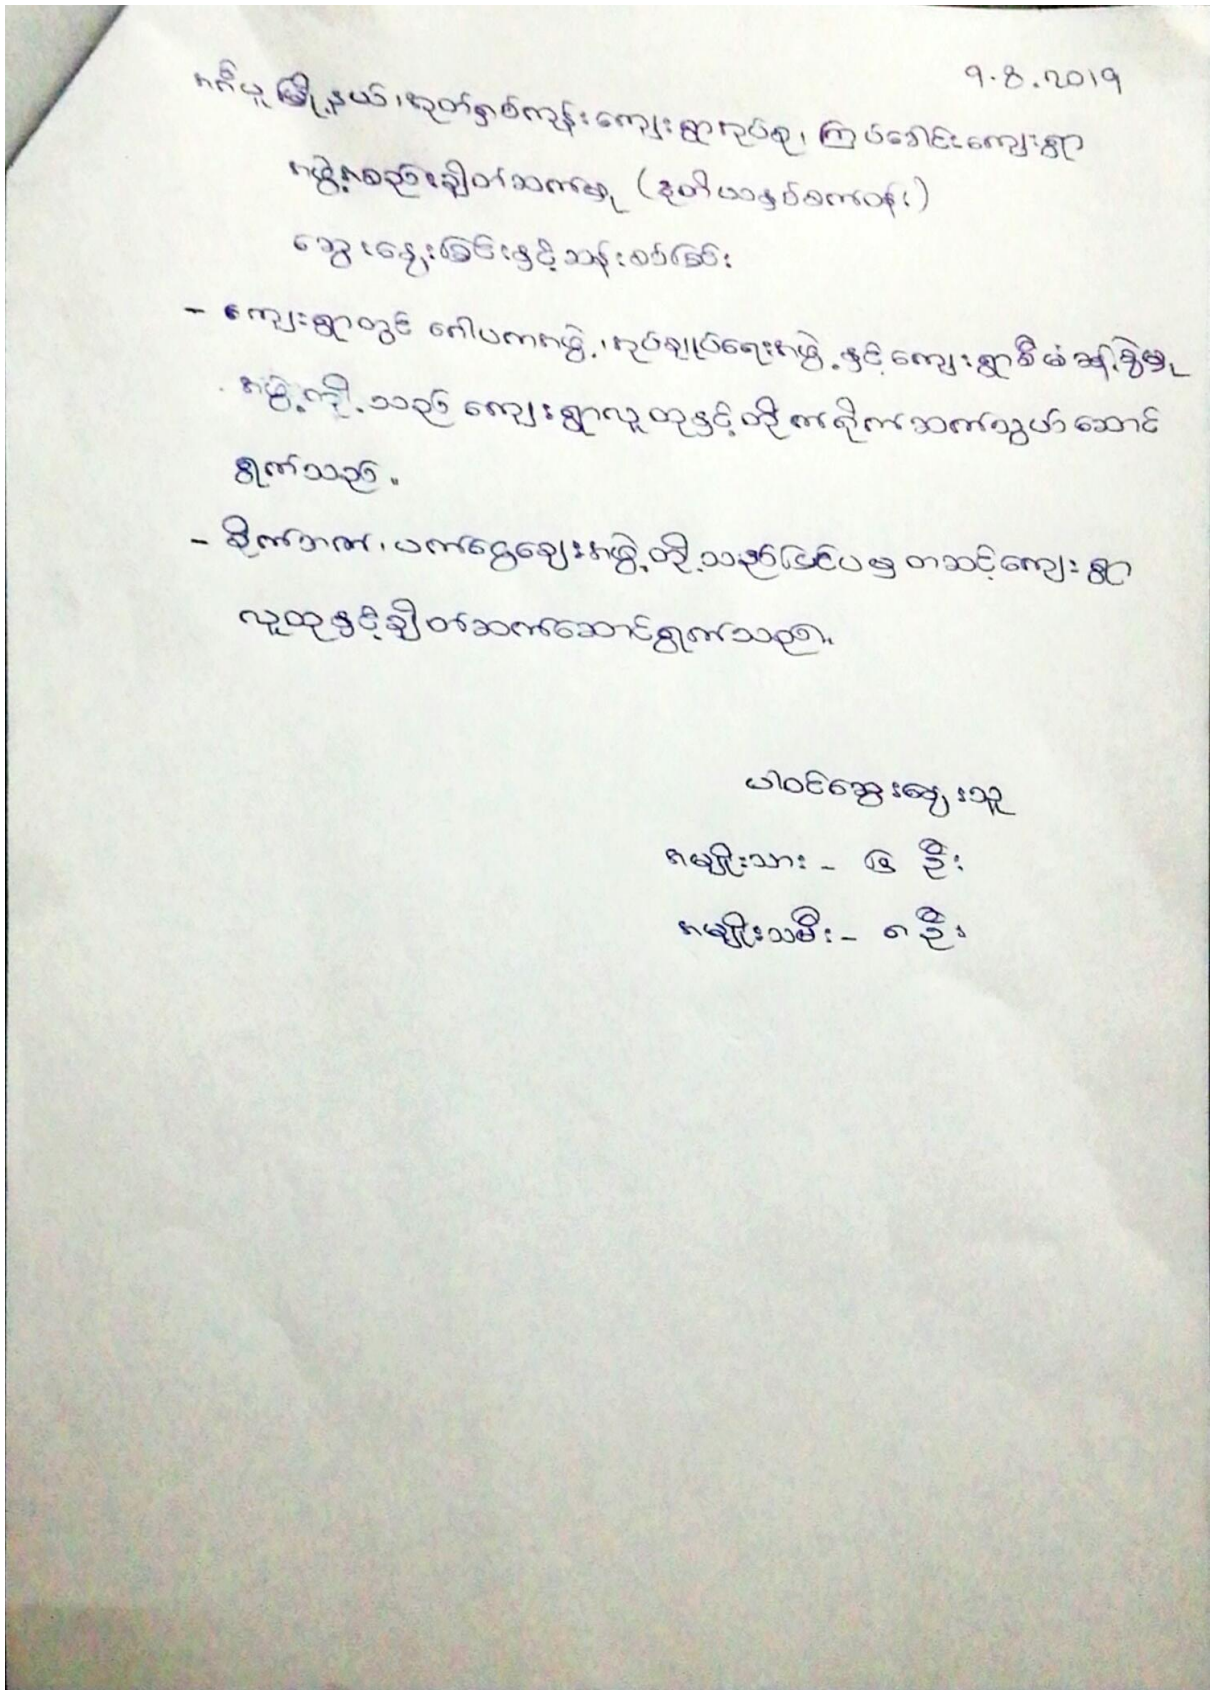 9.8.2019
အင်္ဂပူမြို့နယ်၊ အုတ်ရှစ်ကုန်းကျေးရွာအုပ်စု၊ ကြပ်ခေါင်းကျေးရွာ
အဖွဲ့အစည်းချိတ်ဆက်မှု (ဒုတိယနှစ်စက်ဝန်း)
ဆွေးနွေးခြင်းနှင့်သန်းစစ်ခြင်း
- ကျေးရွာတွင် ဂေါပကအဖွဲ့၊ အုပ်ချုပ်ရေးအဖွဲ့နှင့်ကျေးရွာစီမံခန့်ခွဲမှု
အဖွဲ့တို့သည် ကျေးရွာလူထုနှင့်တိုက်ရိုက်ဆက်သွယ်ဆောင်
ရွက်သည်။
- စိုက်ဘဏ်၊ ပက်ငွေချေးအဖွဲ့တို့သည်ပြင်ပမှတဆင့်ကျေးရွာ
လူထုနှင့်ချိတ်ဆက်ဆောင်ရွက်သည်။
ပါဝင်ဆွေးနွေးသူ
အမျိုးသား - ဦး
အမျိုးသမီး - ၈ ဦး